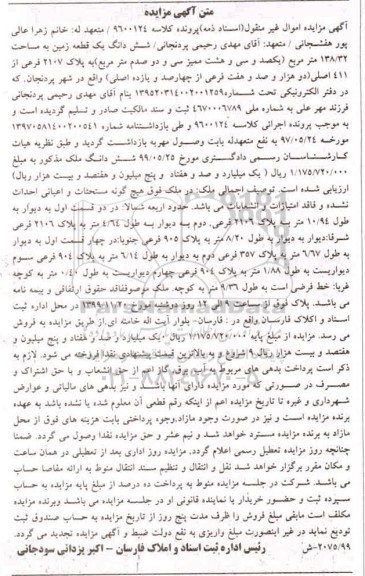 متن آگهی مزایده
آگهی مزایده اموال غیر منقول(اسناد ذمه)پرونده کلاسه ۹۶۰۰۱۲۴ / متعهد له: خانم زهرا عالی
پور هفشجانی / متعهد: آقای مهدی رحیمی پردنجانی/ شش دانگ یک قطعه زمین به مساحت
۱۳۸/۳۲ متر مربع (یکصد و سی و هشت ممیز سی و دو صدم متر مربع)به پلاک ۲۱۰۷ فرعی از
۴۱۱ اصلی(دو هزار و صد و هفت فرعی از چهارصد و یازده اصلی) واقع در شهر پردنجان. که
در دفتر الکترونیکی تحت شماره۱۳۹۵۲۰۳۱۴۰۰۲۰۰۱۲۵۹ بنام آقای مهدی رحیمی پردنجانی
فرزند مهر علی به شماره ملی ۴۶۷۰۰۰۶۷۸۹ ثبت و سند مالکیت صادر و تسلیم گردیده است و
به موجب پرونده اجرائی کلاسه ۹۶۰۰۱۲۴ و طی بازداشتنامه شماره ۱۳۹۷۰۵۸۱۴۰۰۲۰۰۵۴۱
مورخه ۹۷/۰۵/۲۴ به نفع متعهدله بابت وصول مهریه بازداشت گردید و طبق نظریه هیات
کارشناسان رسمی دادگستری مورخ ۹۹/۰۵/۲۵ شش دانگ ملک مذکور به مبلغ
۱/۱۷۵/۷۲۰/۰۰۰ ریال ( یک میلیارد و صد و هفتاد و پنج میلیون و هفتصد و بیست هزار ریال)
ارزیابی شده است. توصیف اجمالی ملک: در ملک فوق هیچ گونه مستحثات و اعیانی احداث
نشده و فاقد امتیازات و انشعابات می باشد. حدود اربعه شمالا: در دو قسمت اول به دیوار به
طول ۱۰/۹۴ متر به پلاک ۲۱۰۶ فرعی. دوم به دیوار به طول ۴/۶۴ متر به پلاک ۲۱۰۶ فرعی
شرقا:دیوار به دیوار به طول ۸/۲۰ متر به پلاک ۹۰۵ فرعی جنوبا:در چهار قسمت اول به دیوار
به طول ۶/۶۷ متر به پلاک ۳۵۷ فرعی دوم به دیوار به طول ۶/۱۴ متر به پلاک ۹۰۴ فرعی سوم
دیواریست به طول ۱/۸۸ متر به پلاک ۹۰۴ فرعی چهارم دیواریست به طول ۰/۴۰ متر به کوچه
غربا: خط فرضی است به طول ۹/۳۶ متر به کوچه. ملک موصوففاقد حقوق ارتفاقی و بیمه نامه
می باشد. پلاک فوق از ساعت ۹ الی ۱۲ روز دوشنبه مورخ ۱۳۹۹/۱۱/۲۰ در محل اداره ثبت
اسناد و اکلاک فارسان واقع در : فارسان- بلوار آیت اله خامنه ای از طریق مزایده به فروش
می رسد. مزایده از مبلغ پایه ۱/۱۷۵/۷۲۰/۰۰۰ ریال ،یک میلیارد و صد و هفتاد و پنج میلیون و
هفتصد و بیست هزار ریال شروع و به بالاترین قیمت پیشنهادی نقدا فروخته می شود. لازم به
ذکر است پرداخت بدهی های مربوط به آب، برق، گاز اعم از حق انشعاب و یا حق اشتراک و
مصرف در صورتی که مورد مزایده دارای آنها باشد و نیز بدهی های مالیاتی و عوارض
شهرداری و غیره تا تاریخ مزایده اعم از اینکه رقم قطعی آن معلوم شده یا نشده باشد به عهده
برنده مزایده است و نیز در صورت وجود مازاد،وجوه پرداختی بابت هزینه های فوق از محل
مازاد به برنده مزایده مسترد خواهد شد و نیم عشر و حق مزایده نقدا وصول می گردد. ضمنا
چنانچه روز مزایده تعطیل رسمی اعلام گردد. مزایده روز اداری بعد از تعطیلی در همان ساعت
و مکان مقرر برگزار خواهد شد نقل و انتقال و تنظیم سند انتقال منوط به ارائه مفاصا حساب
می باشد. شرکت در جلسه مزایده منوط به پرداخت ده درصد از مبلغ پایه مزایده به حساب
سپرده ثبت و حضور خریدار یا نماینده قانونی او در جلسه مزایده می باشد وبرنده مزایده
مکلف است مابقی مبلغ فروش را ظرف مدت پنج روز از تاریخ مزایده به حساب صندوق ثبت
تودیع نماید در غیر اینصورت مبلغ واریزی به نفع دولت ضبط و آگهی مزایده تجدید می گردد.
۲۰۷۵/۹۹-ش رئیس اداره ثبت اسناد و املاک فارسان - اکبر یزدانی سودجانی